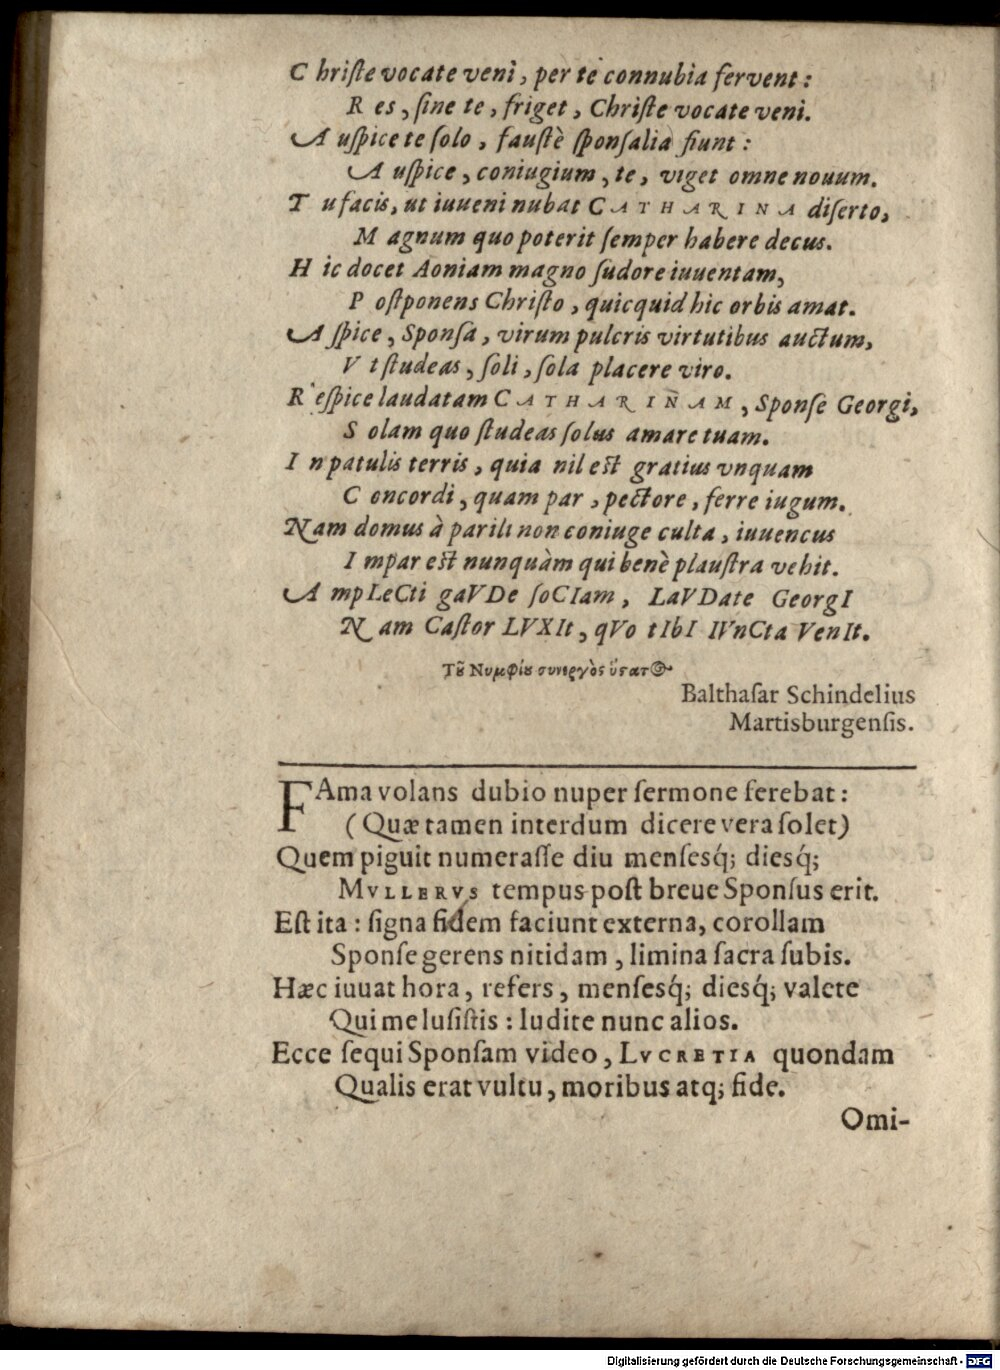 C hriſte vocate venì, per te connubia fervent:
R es, ſine te, friget, Chriſte vocate venì.
A uſpice te ſolo, fauſtè ſponſalia fiunt:
A uſpice, coniugium, te, viget omne nouum.
T u facis, ut iuueni nubat CATHARINA diſerto,
M agnum quo poterit ſemper habere decus.
H ic docet Aoniam magno ſudore iuuentam,
P oſtponens Chriſto, quicquid hic orbis amat.
A ſpice, Sponſa, virum pulcris virtutibus auctum,
V t ſtudeas, ſoli, ſola placere viro.
R eſpice laudatam CATHARINAM, Sponſe Georgì,
S olam quo ſtudeas ſolus amare tuam.
I n patulis terris, quia nil eſt gratius vnquam
C oncordi, quam par, pectore, ferre iugum.
Nam domus à parili non coniuge culta, iuuencus
I mpar eſt nunquàm qui benè plauſtra vehit.
A mpLeCti gaVDe ſoCIam, LaVDate GeorgI
N am Caſtor LVXIt, qVo tIbI IVnCta VenIt.
Τȣ͂ Νυμφίȣ συνεργὸς ὕςατος
Balthaſar Schindelius
Martisburgenſis.
FAma volans dubio nuper ſermone ferebat:
(Quæ tamen interdum dicere vera ſolet)
Quem piguit numeraſſe diu menſesq́; diesq́;
MVLLERVS tempus poſt breue Sponſus erit.
Eſt ita: ſigna fidem faciunt externa, corollam
Sponſe gerens nitidam, limina ſacra ſubis.
Hæc iuuat hora, refers, menſesq́; diesq́; valete
Qui me luſiſtis: ludite nunc alios.
Ecce ſequi Sponſam video, LVCRETIA quondam
Qualis erat vultu, moribus atq; fide.
Omi-
Digitalisierung gefördert durch die Deutsche Forschungsgemeinschaft - DFG